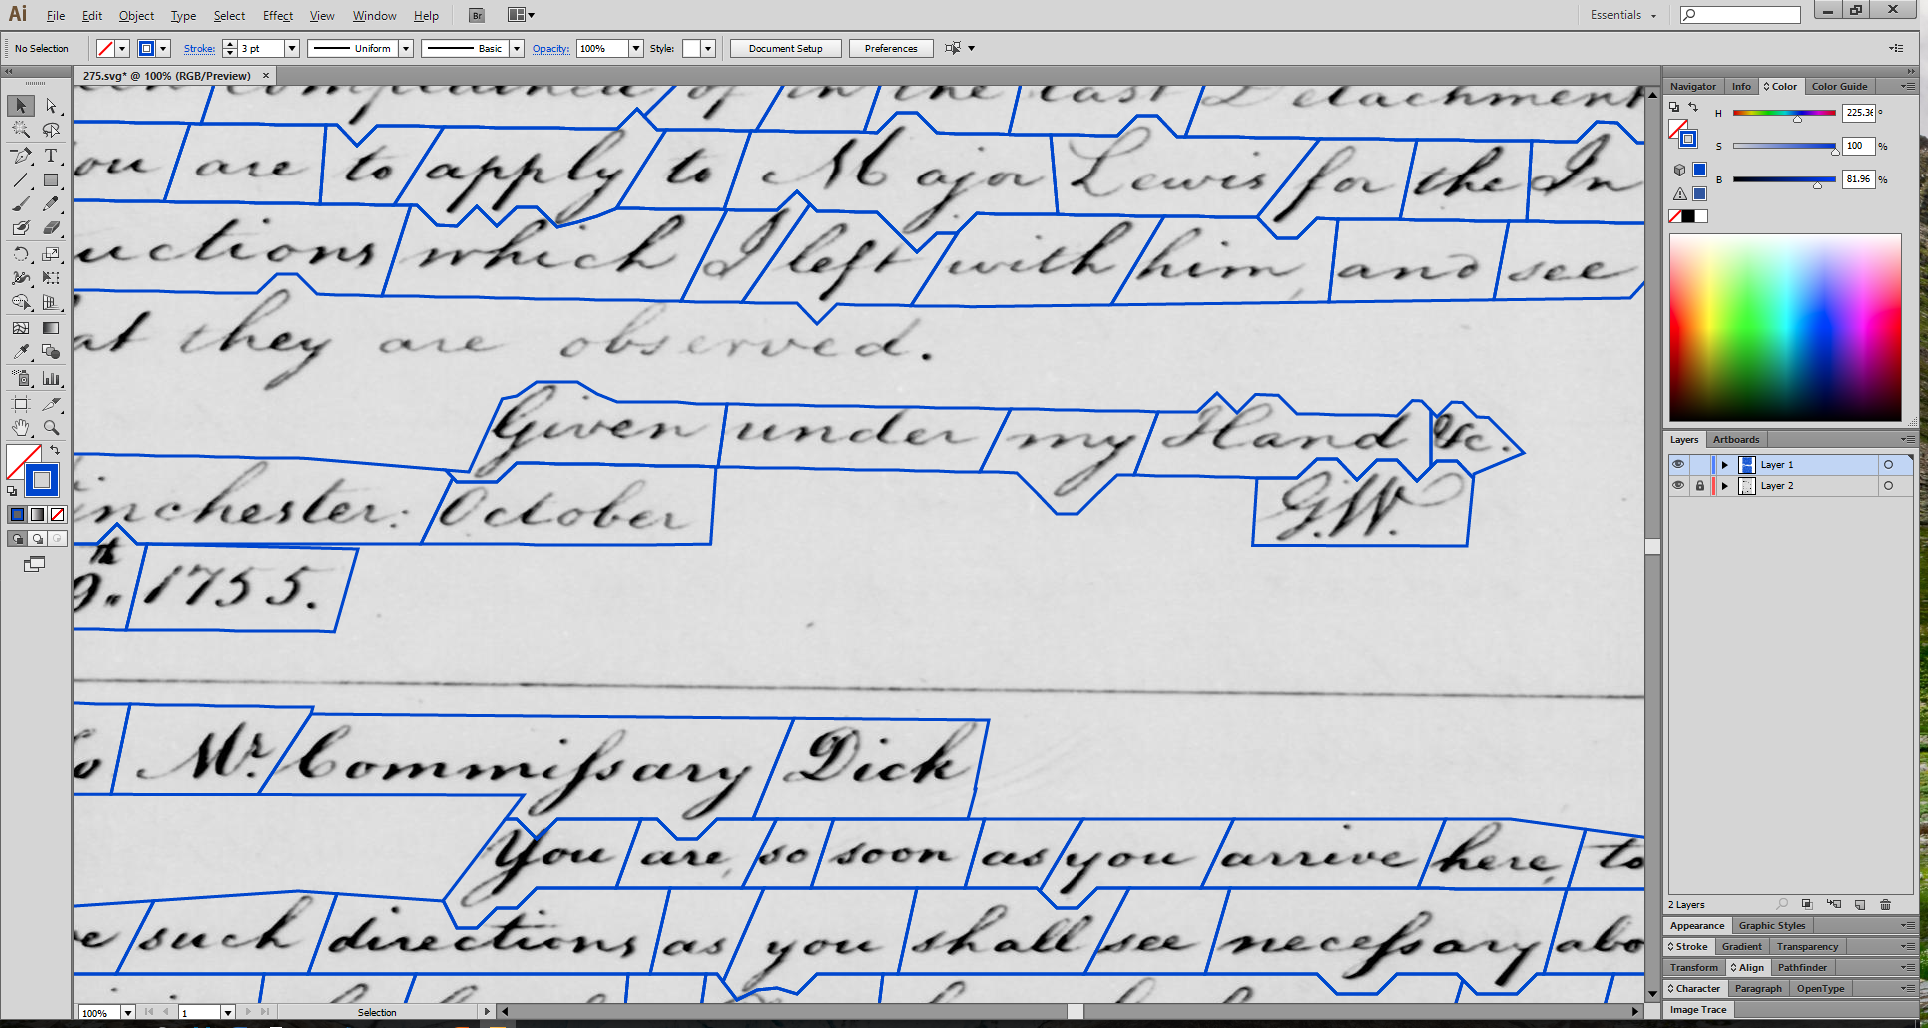 Ai File Edit Object Type Select Effect View Window Help Br Essentials
No Selection Stroke: 3 pt Uniform Basic Opacity: 100% Style: Document Setup Preferences
275.svg* @ 100% (RGB/Preview) ×
complained of in the last Detachment
ou are to apply to Major Lewis for the In
uctions which I left with him, and see
at they are observed.
Given under my Hand &c.
inchester: October G.W.
9.th 1755.
o Mr. Commissary Dick
You are, so soon as you arrive here, to
e such directions as you shall see necessary abo
100% 1 Selection
Navigator Info Color Color Guide
H 225.3 °
S 100 %
B 81.96 %
Layers Artboards
Layer 1
Layer 2
2 Layers
Appearance Graphic Styles
Stroke Gradient Transparency
Transform Align Pathfinder
Character Paragraph OpenType
Image Trace